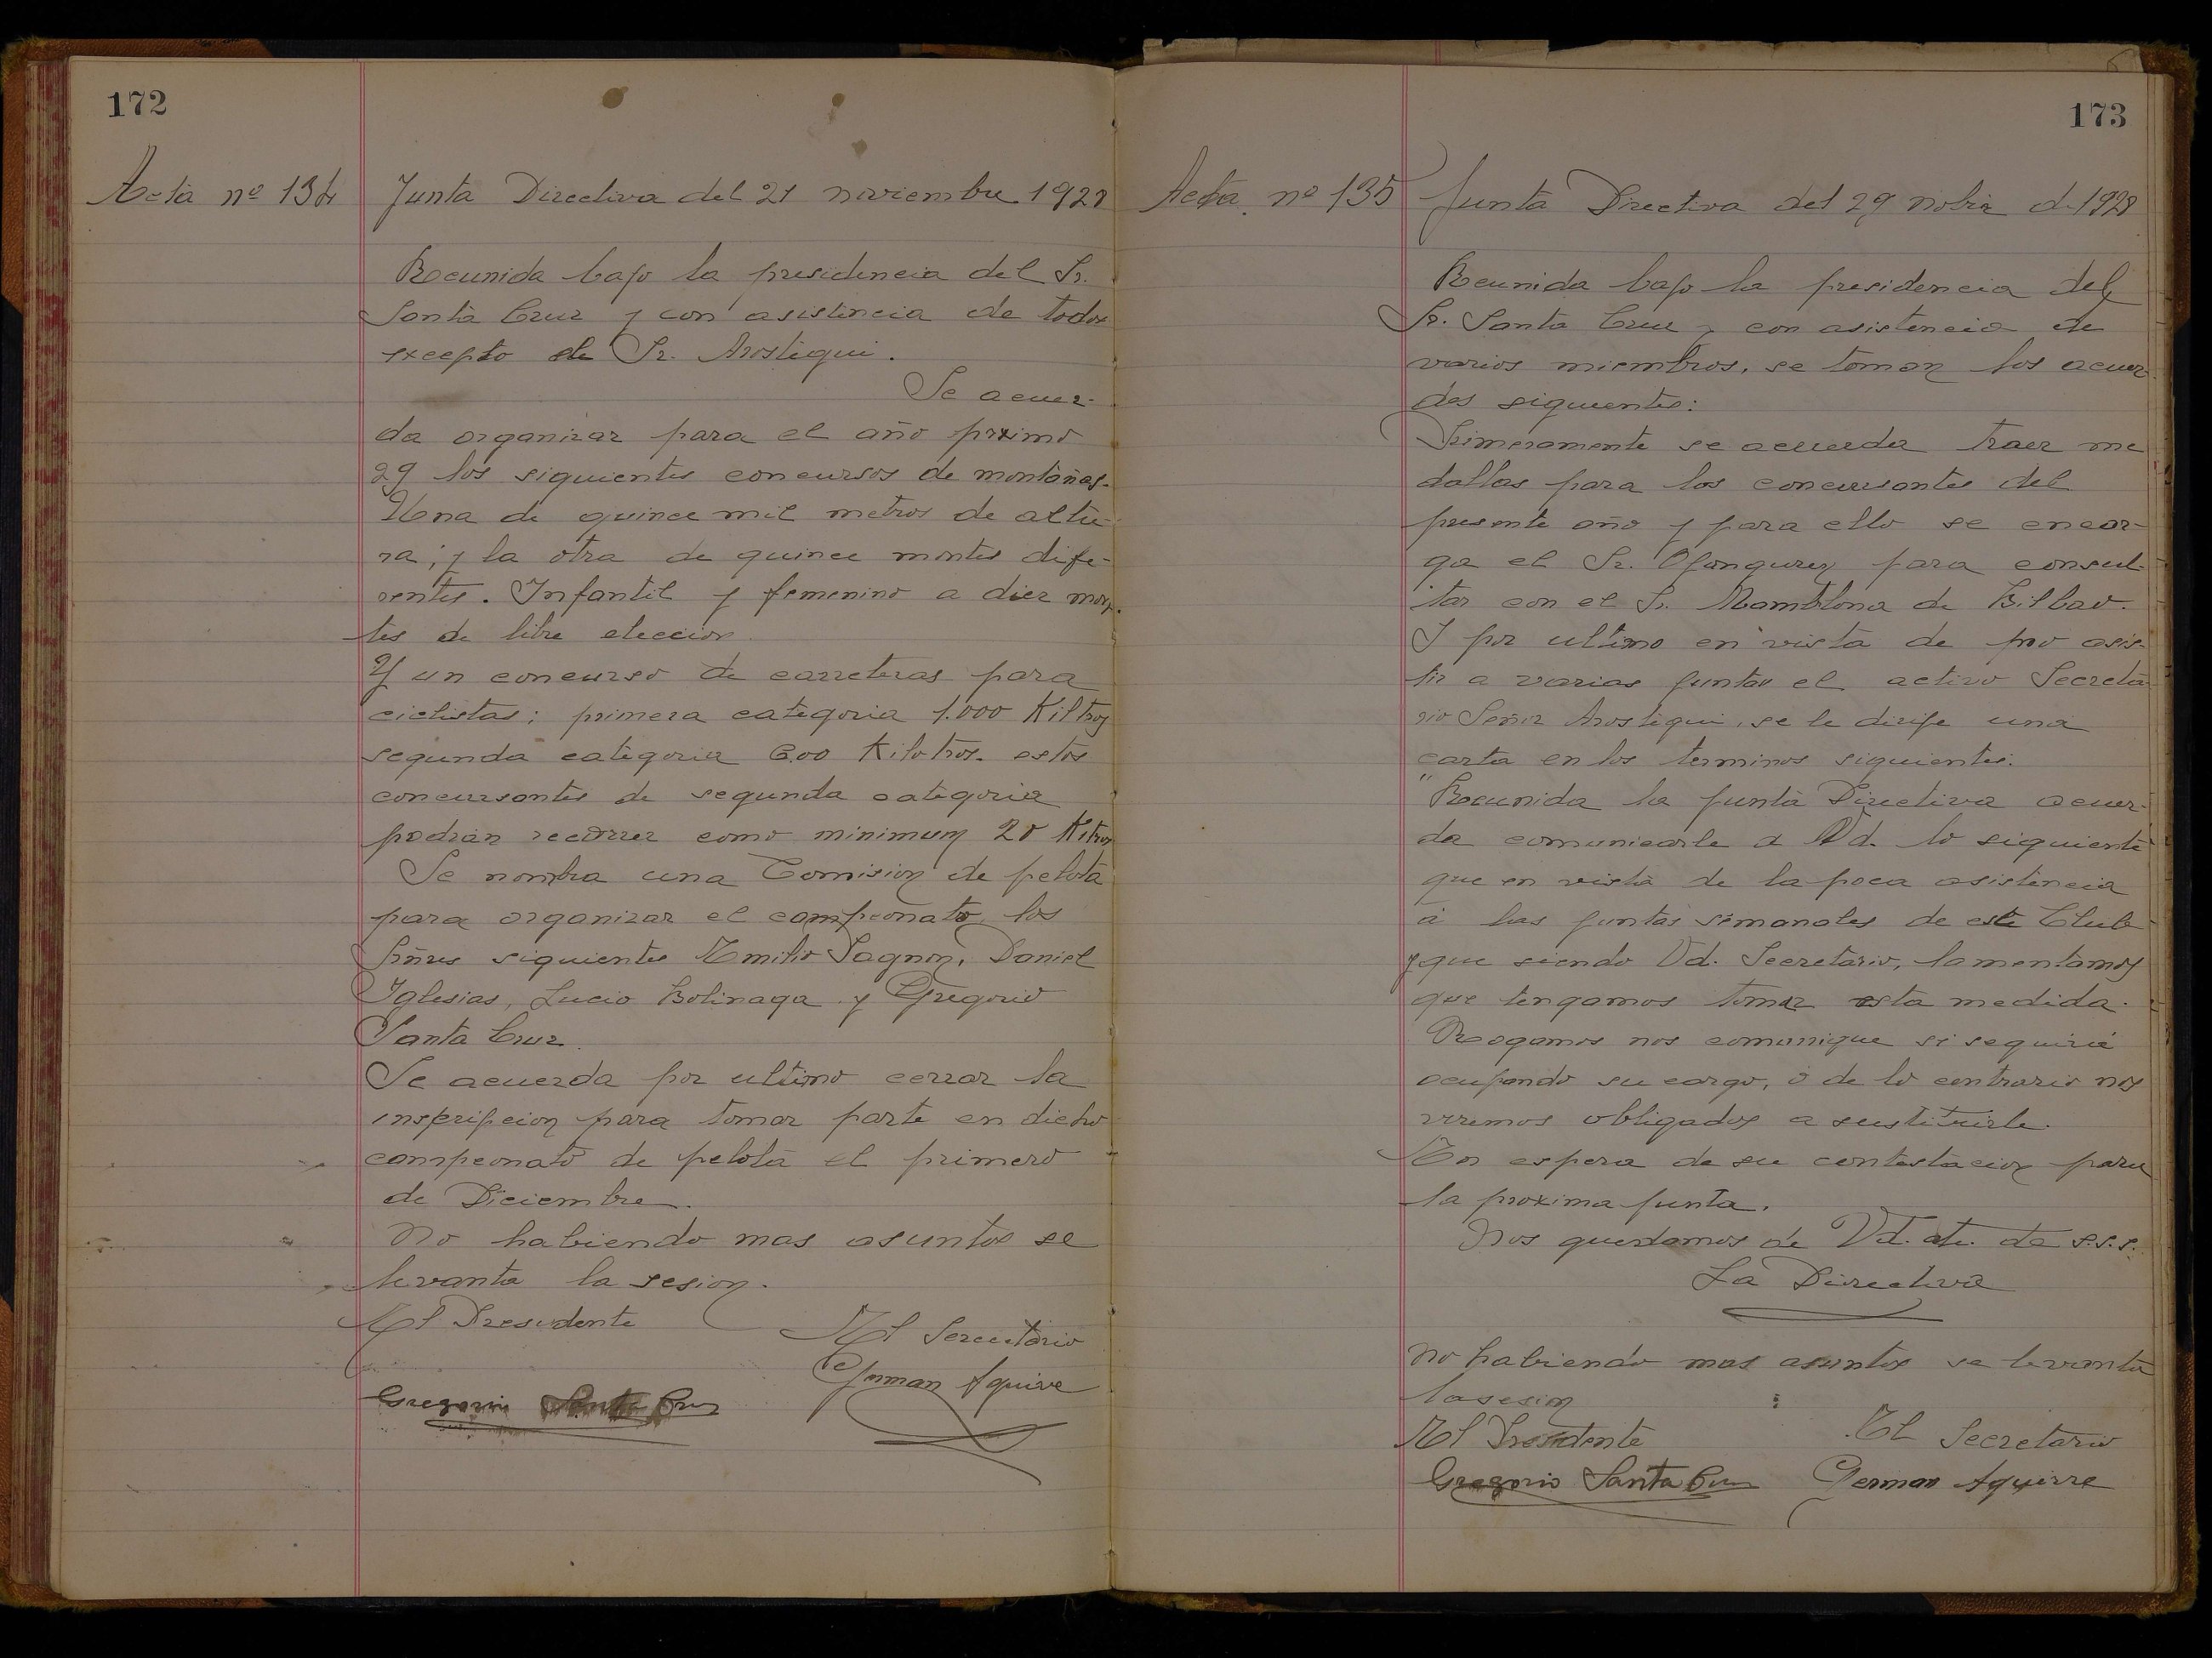 172
Acta nº 134
Junta Directiva del 21 noviembre 1928
Reunida bajo la presidencia del Sr.
Santa Cruz y con asistencia de todos
excepto el Sr. Arostegui.
Se acuer-
da organizar para el año proximo
29 los siguientes concursos de montañas.
Una de quince mil metros de altu-
ra; y la otra de quince montes dife-
rentes. Infantil y femenino a diez mon-
tes de libre eleccion.
Y un concurso de carreteras para
ciclistas; primera categoria 1.000 Kiltros
segunda categoria 600 Kilotros. estos
concursantes de segunda categoria
podran recorrer como minimum 20 Kltros
Se nombra una Comision de pelota
para organizar el campeonato los
Señres siguientes Emilio Pagnon, Daniel
Iglesias, Lucio Bolinaga y Gregorio
Santa Cruz.
Se acuerda por ultimo cerrar la
inscripcion para tomar parte en dicho
campeonato de pelota el primero
de Diciembre.
No habiendo mas asuntos se
levanta la sesion.
El Presidente
El Secretario
Gregorio Santa Cruz
German Aguirre
173
Acta nº 135
Junta Directiva del 29 nobre de 1928
Reunida bajo la presidencia del
Sr. Santa Cruz y con asistencia de
varios miembros, se toman los acuer-
dos siguientes:
Primeramente se acuerda traer me
dallas para los concursantes del
presente año y para ello se encar-
ga el Sr. Olanguren para consul-
tar con el Sr. Mamblona de Bilbao.
I por ultimo en vista de no asis-
tir a varias juntas el activo Secreta-
rio Señor Arostegui, se le dirije una
carta en los terminos siguientes.
"Reunida la junta Directiva acuer-
da comunicarle a Vd. lo siguiente
que en vista de la poca asistencia
á las juntas semanales de este Club
y que siendo Vd. Secretario, lamentamos
que tengamos tomar esta medida.
Rogamos nos comunique si seguirá
ocupando su cargo, ó de lo contrario nos
vremos obligados a sustituirle.
En espera de su contestacion para
la proxima junta.
Nos quedamos de Vd. ate. de s.s.s.
La Directiva
No habiendo mas asuntos se levanta
la sesion
El Presidente
El Secretario
Gregorio Santa Cruz
German Aguirre